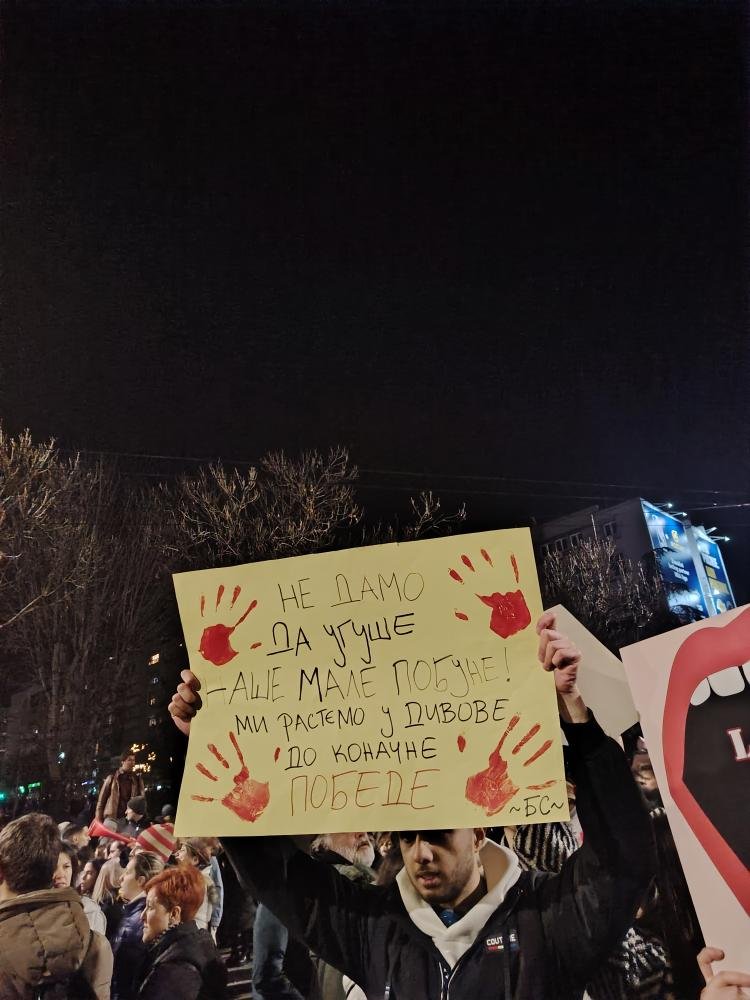 НЕ ДАМО
ДА УГУШЕ
НАШЕ МАЛЕ ПОБУНЕ!
МИ РАСТЕМО У ДИВОВЕ
ДО КОНАЧНЕ
ПОБЕДЕ
~БС~